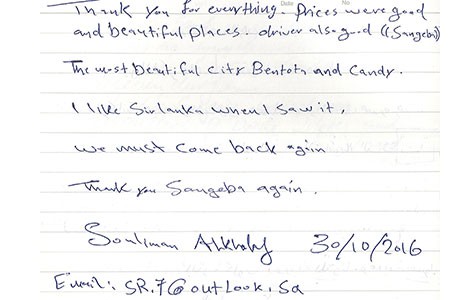 Thank you for everything. Prices were good
and beautiful places. driver also good ((Sangeba))
The most beautiful city Bentota and Candy.
I like Sirlanka when I saw it,
we must come back again
Thank you Sangeba again.
Souliman 30/10/2016
Email: SR.7@outlook.sa